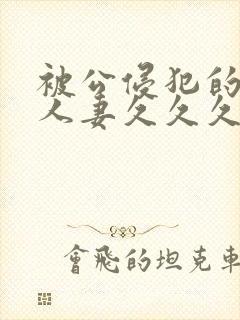 被公侵犯的
人妻久久久
會飛的坦克車